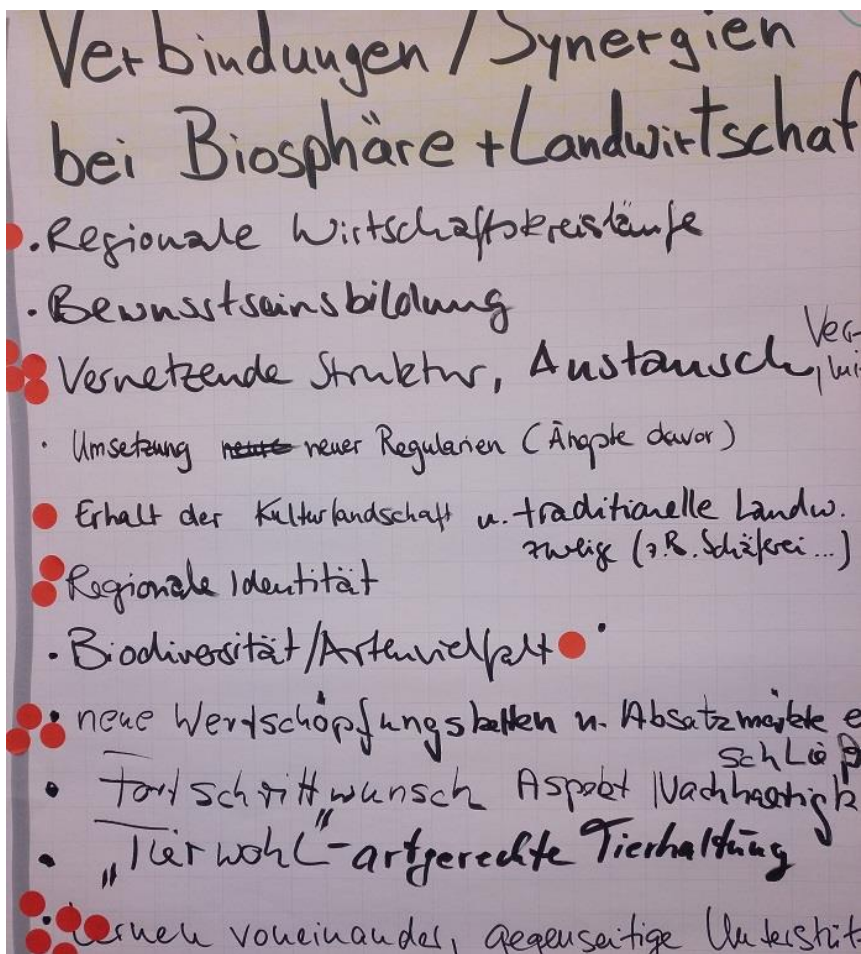 Verbindungen / Synergien
bei Biosphäre + Landwirtschaf
• Regionale Wirtschaftskreisläufe
• Bewusstseinsbildung
Vernetzende Struktur, Austausch, Ver-
• Umsetzung neuer Regularien (Ängste davor)
Erhalt der Kulturlandschaft u. traditionelle Landw.
zweige (z.B. Schäferei ...)
Regionale Identität
• Biodiversität/Artenvielfalt
• neue Wertschöpfungsketten u. Absatzmärkte e
schließ
• Fortschrittwunsch Aspekt Nachhaltigk
• „Tierwohl"-artgerechte Tierhaltung
• Lernen voneinander, gegenseitige Unterstüt